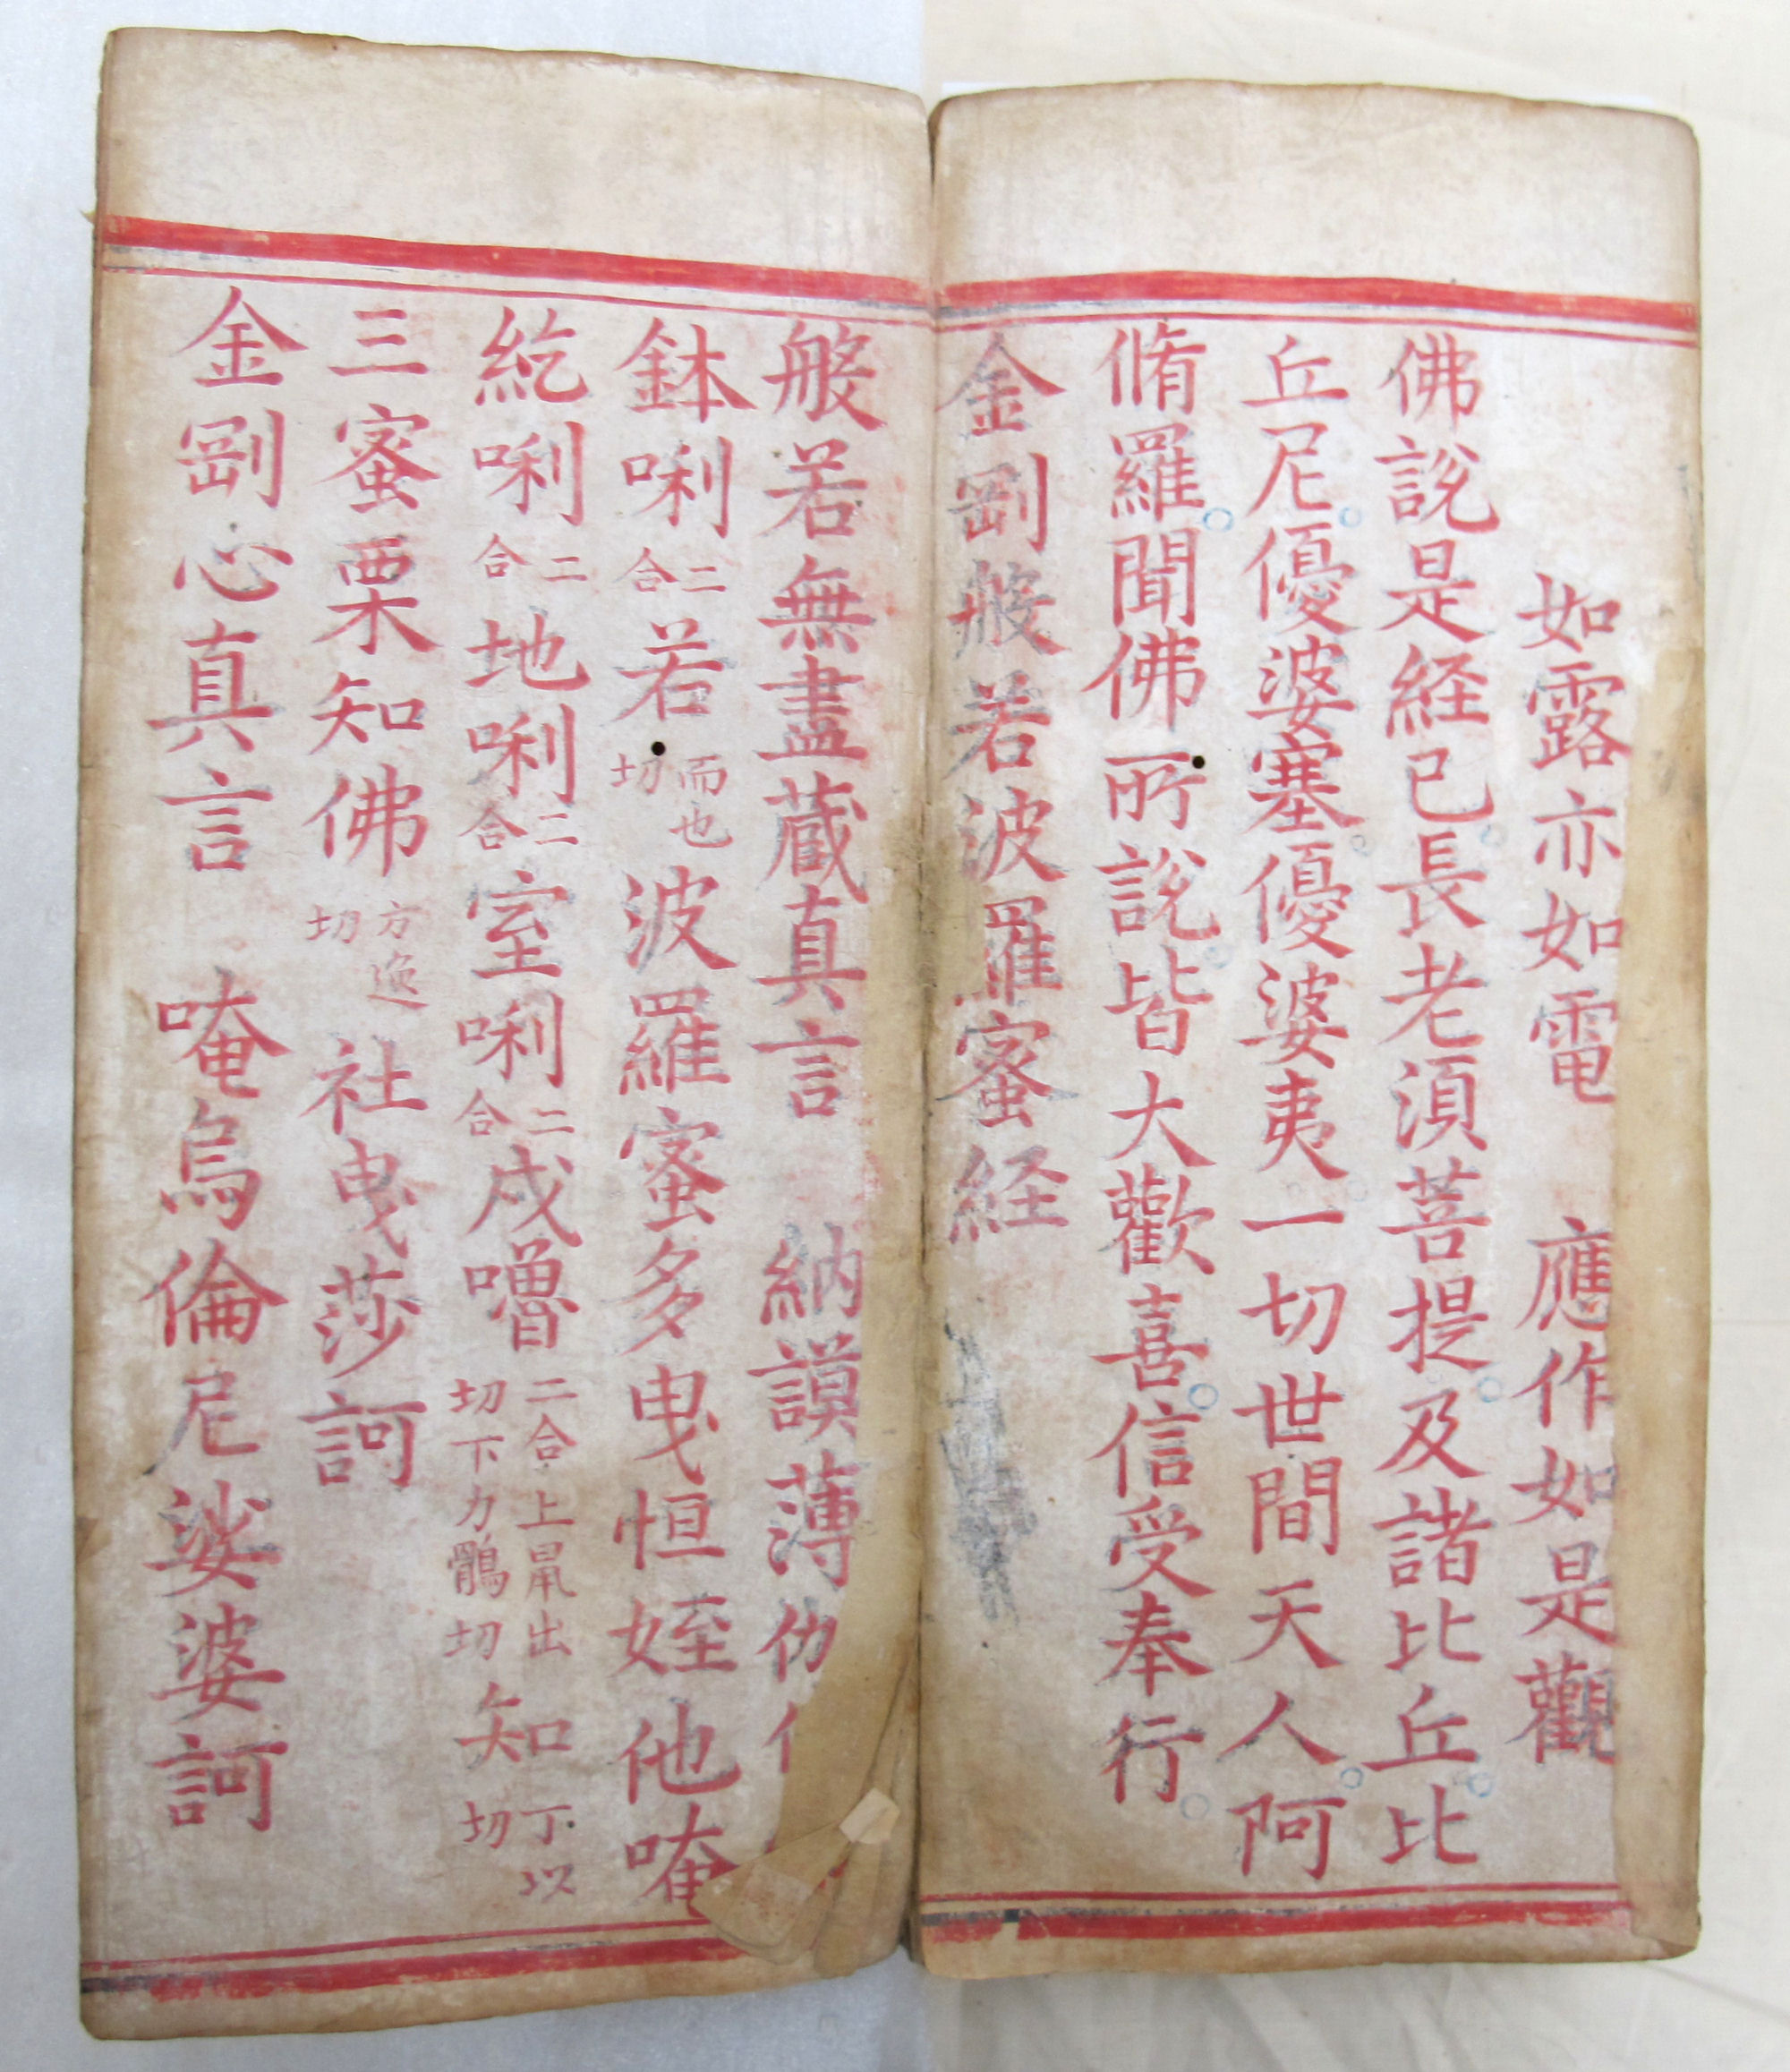 如露亦如電　應作如是觀
佛說是経已長老湏菩提及諸比丘比
丘尼優婆塞優婆夷一切世間天人阿
脩羅聞佛所說皆大歡喜信受奉行
金剛般若波羅蜜経
般若無盡蔵真言　納謨薄伽
鉢唎二合若而也切波羅蜜多曳恒姪他唵
紇唎二合地唎二合室唎二合戍嚕二合上鼡出切下力鶻切知丁以切
三蜜栗知佛方逸切社曳莎訶
金剛心真言　唵烏倫尼娑婆訶